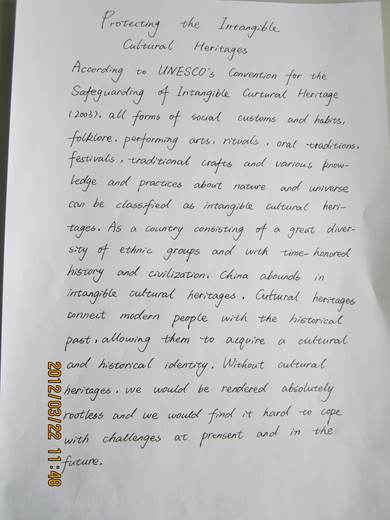 Protecting the Intangible
Cultural Heritages
According to UNESCO's Convention for the
Safeguarding of Intangible Curtural Heritage
(2003), all forms of social customs and habits,
folklore, performing arts, rituals, oral traditions,
festivals, traditional crafts and various know-
ledge and practices about nature and universe
can be classified as intangible cultural heri-
tages. As a country consisting of a great diver-
sity of ethnic groups and with time-honored
history and civilization, China abounds in
intangible cultural heritages. Cultural heritages
connect modern people with the historical
past, allowing them to acquire a cultural
and historical identity. Without cultural
heritages, we would be rendered absolutely
rootless and we would find it hard to cope
with challenges at prensent and in the
future.
2012/03/22 11:48